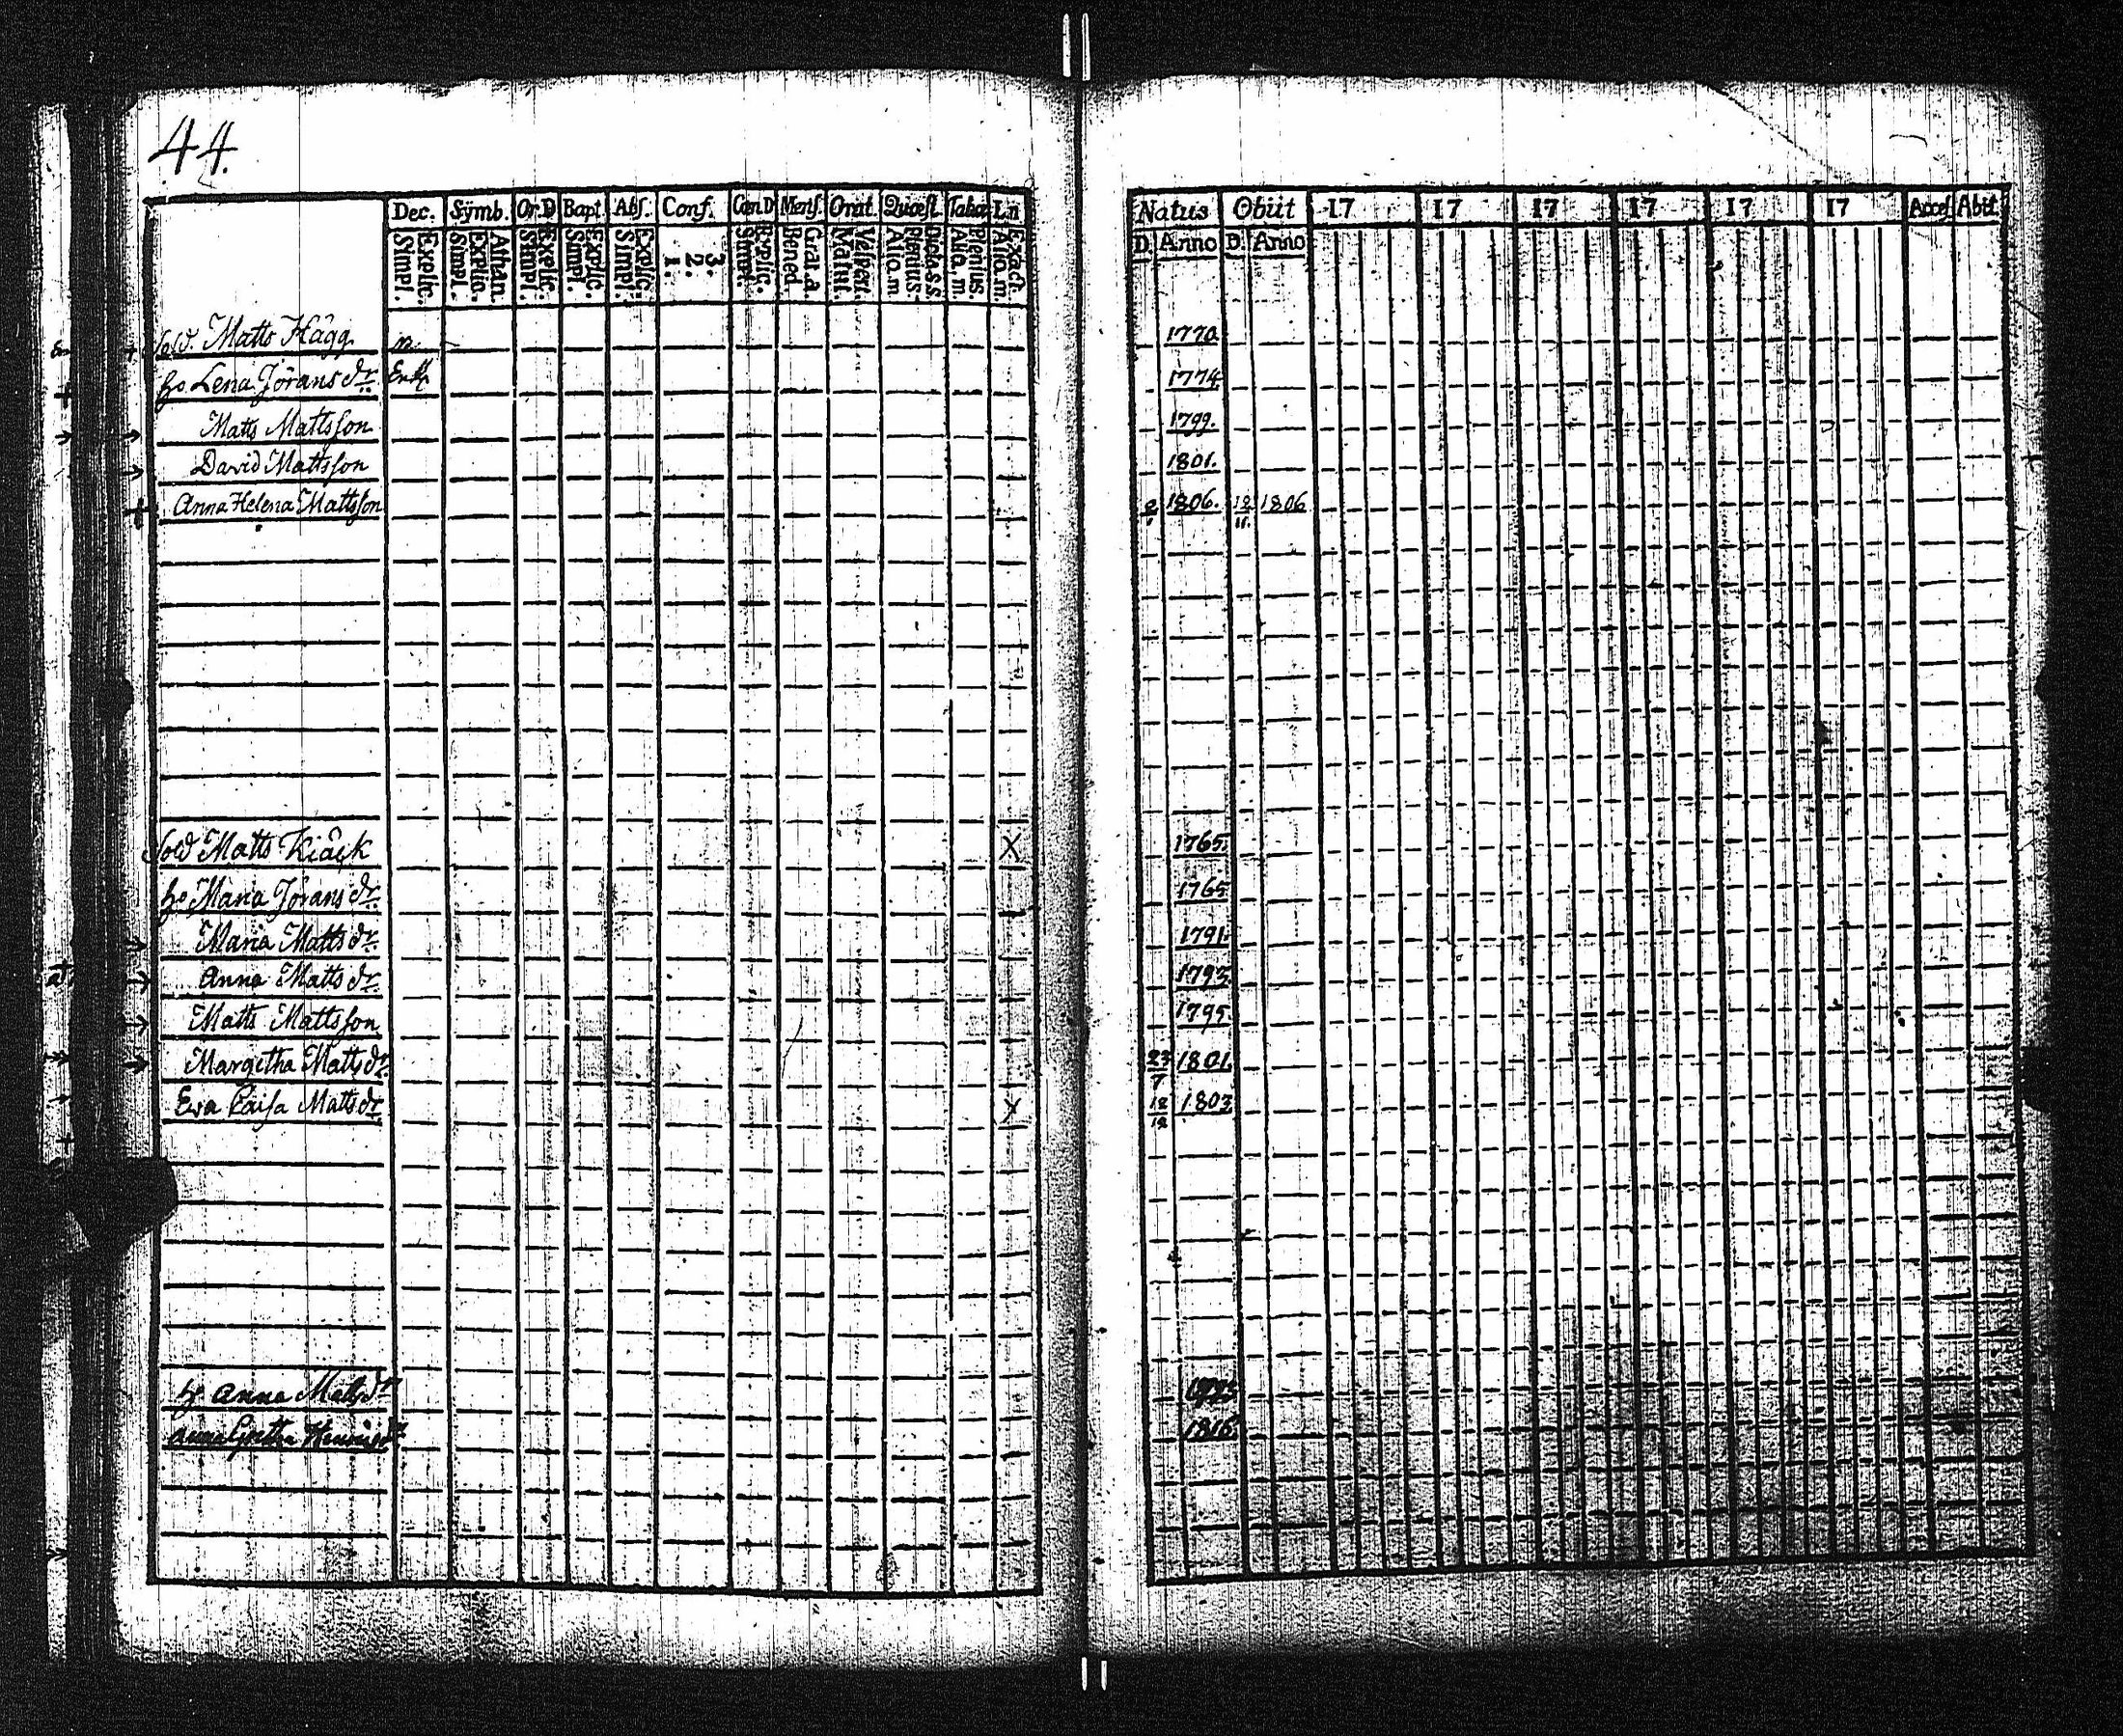 44.
Dec. Symb. Or.D Bapt. Abs. Conf. Cœn.D Mens. Orat. Quæst. Tabœ L.n Natus Obiit 17 17 17 17 17 17 Acces Abit
Simpl. Explic. Simpl. Explic. Athan. Simpl. Explic. Simpl. Explic. Simpl. Explic. 1. 2. 3. Simpl. Explic. Bened. Grat.a. Matut. Vesperi. Aliq.m. Plenius. Dicta.s.s. Aliq.m. Plenius. Aliq.m. Exact. D. Anno D. Anno
Sold. Matts Hägg n. 1770.
h:o Lena Jörans dr. Enk 1774
Matts Mattsson 1799.
David Mattsson 1801.
Anna Helena Mattsson 1806. 18/11. 1806
Sold Matts Kiäck X 1765.
h:o Maria Jörans dr. 1765
Maria Matts dr. 1791.
Anna Matts dr. 1793.
Matts Mattsson 1795.
Margetha Matts dr. 23/7 1801.
Eva Caisa Matts dr X 18/12 1803.
h: Anna Matts dr
Anna Gretha 1816.